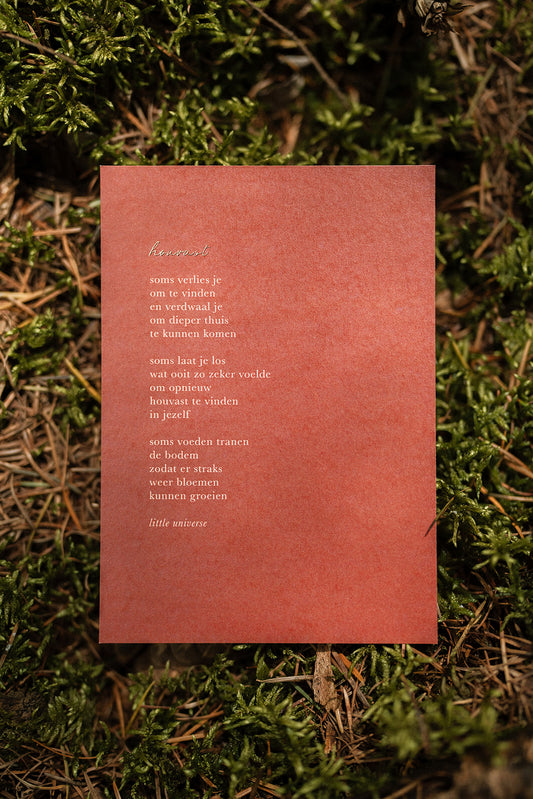 houvast
soms verlies je
om te vinden
en verdwaal je
om dieper thuis
te kunnen komen
soms laat je los
wat ooit zo zeker voelde
om opnieuw
houvast te vinden
in jezelf
soms voeden tranen
de bodem
zodat er straks
weer bloemen
kunnen groeien
little universe